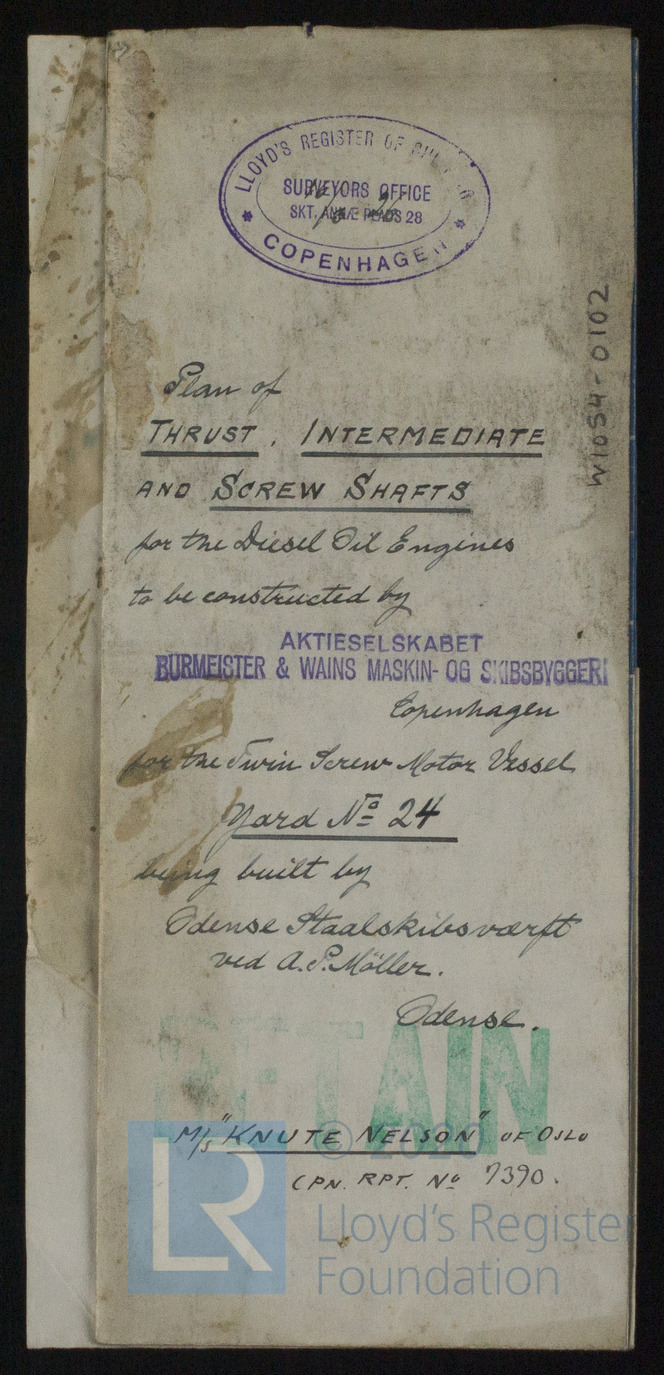 LLOYD'S REGISTER OF
SURVEYORS OFFICE
SKT. ANNÆ PLADS 28
COPENHAGEN
W1054-0102
Plan of
THRUST, INTERMEDIATE
AND SCREW SHAFTS
for the Diesel Oil Engines
to be constructed by
AKTIESELSKABET
BURMEISTER & WAINS MASKIN- OG SKIBSBYGGERI
Copenhagen
for the Twin Screw Motor Vessel
Yard Nº 24
being built by
Odense Staalskibsværft
ved A.P. Möller.
Odense.
RETAIN
M/S "KNUTE NELSON" OF OSLO
CPN. RPT. Nº 7390.
© 2020
LR
Lloyd's Register
Foundation